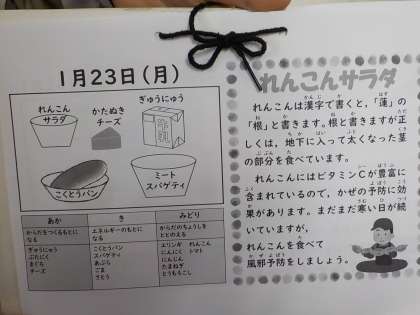 1月23日(月)
れんこん
サラダ
かたぬき
チーズ
ぎゅうにゅう
牛乳
こくとうパン
ミート
スパゲティ
あか
き
みどり
からだをつくるもとに
なる
エネルギーのもとに
なる
からだのちょうしを
ととのえる
ぎゅうにゅう
ぶたにく
まぐろ
チーズ
こくとうパン
スパゲティ
あぶら
ごま
さとう
エリンギ れんこん
にんにく トマト
にんじん
たまねぎ
とうもろこし
れんこんサラダ
れんこんは漢字で書くと,「蓮」の
「根」と書きます。根と書きますが正
しくは,地下に入って太くなった茎
の部分を食べています。
れんこんにはビタミンCが豊富に
含まれているので,かぜの予防に効
果があります。まだまだ寒い日が続
いていますが,
れんこんを食べて
風邪予防をしましょう。